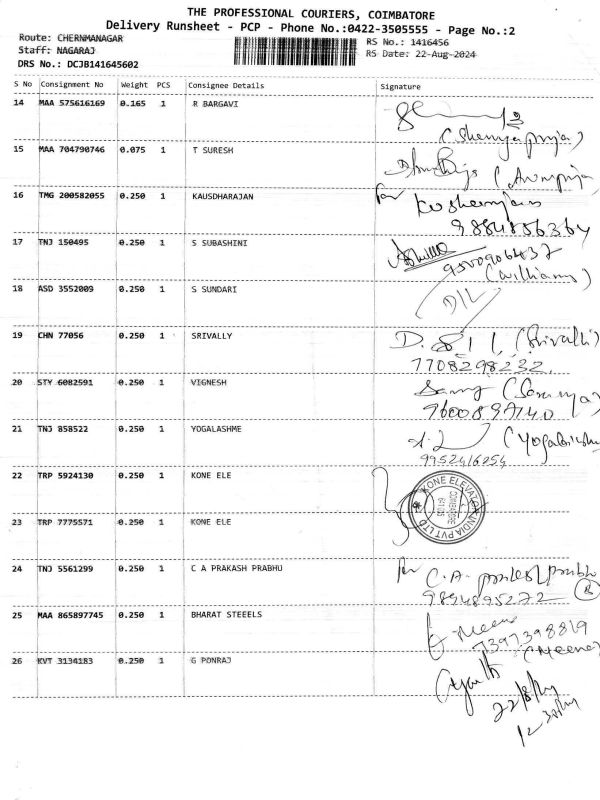 THE PROFESSIONAL COURIERS, COIMBATORE
Delivery Runsheet - PCP - Phone No.:0422-3505555 - Page No.:2
Route: CHERNMANAGAR
RS No.: 1416456
Staff: NAGARAJ
RS Date: 22-Aug-2024
DRS No.: DCJB141645602
S No Consignment No Weight PCS Consignee Details Signature
14 MAA 575616169 0.165 1 R BARGAVI
15 MAA 704790746 0.075 1 T SURESH
16 TMG 200582055 0.250 1 KAUSDHARAJAN
9884856364
17 TNJ 150495 0.250 1 S SUBASHINI
9500906437
(williams)
18 ASD 3552009 0.250 1 S SUNDARI
D/L
19 CHN 77056 0.250 1 SRIVALLY
(Srivalli)
7708298232
20 STY 6082591 0.250 1 VIGNESH
(Soumya)
21 TNJ 858522 0.250 1 YOGALASHME
9952416254
22 TRP 5924130 0.250 1 KONE ELE
KONE ELEVATOR INDIA PVT LTD
COIMBATORE
23 TRP 7775571 0.250 1 KONE ELE
24 TNJ 5561299 0.250 1 C A PRAKASH PRABHU
for C.A.
9894895272
25 MAA 865897745 0.250 1 BHARAT STEEELS
7397398819
(Meena)
26 KVT 3134183 0.250 1 G PONRAJ
22/8/24